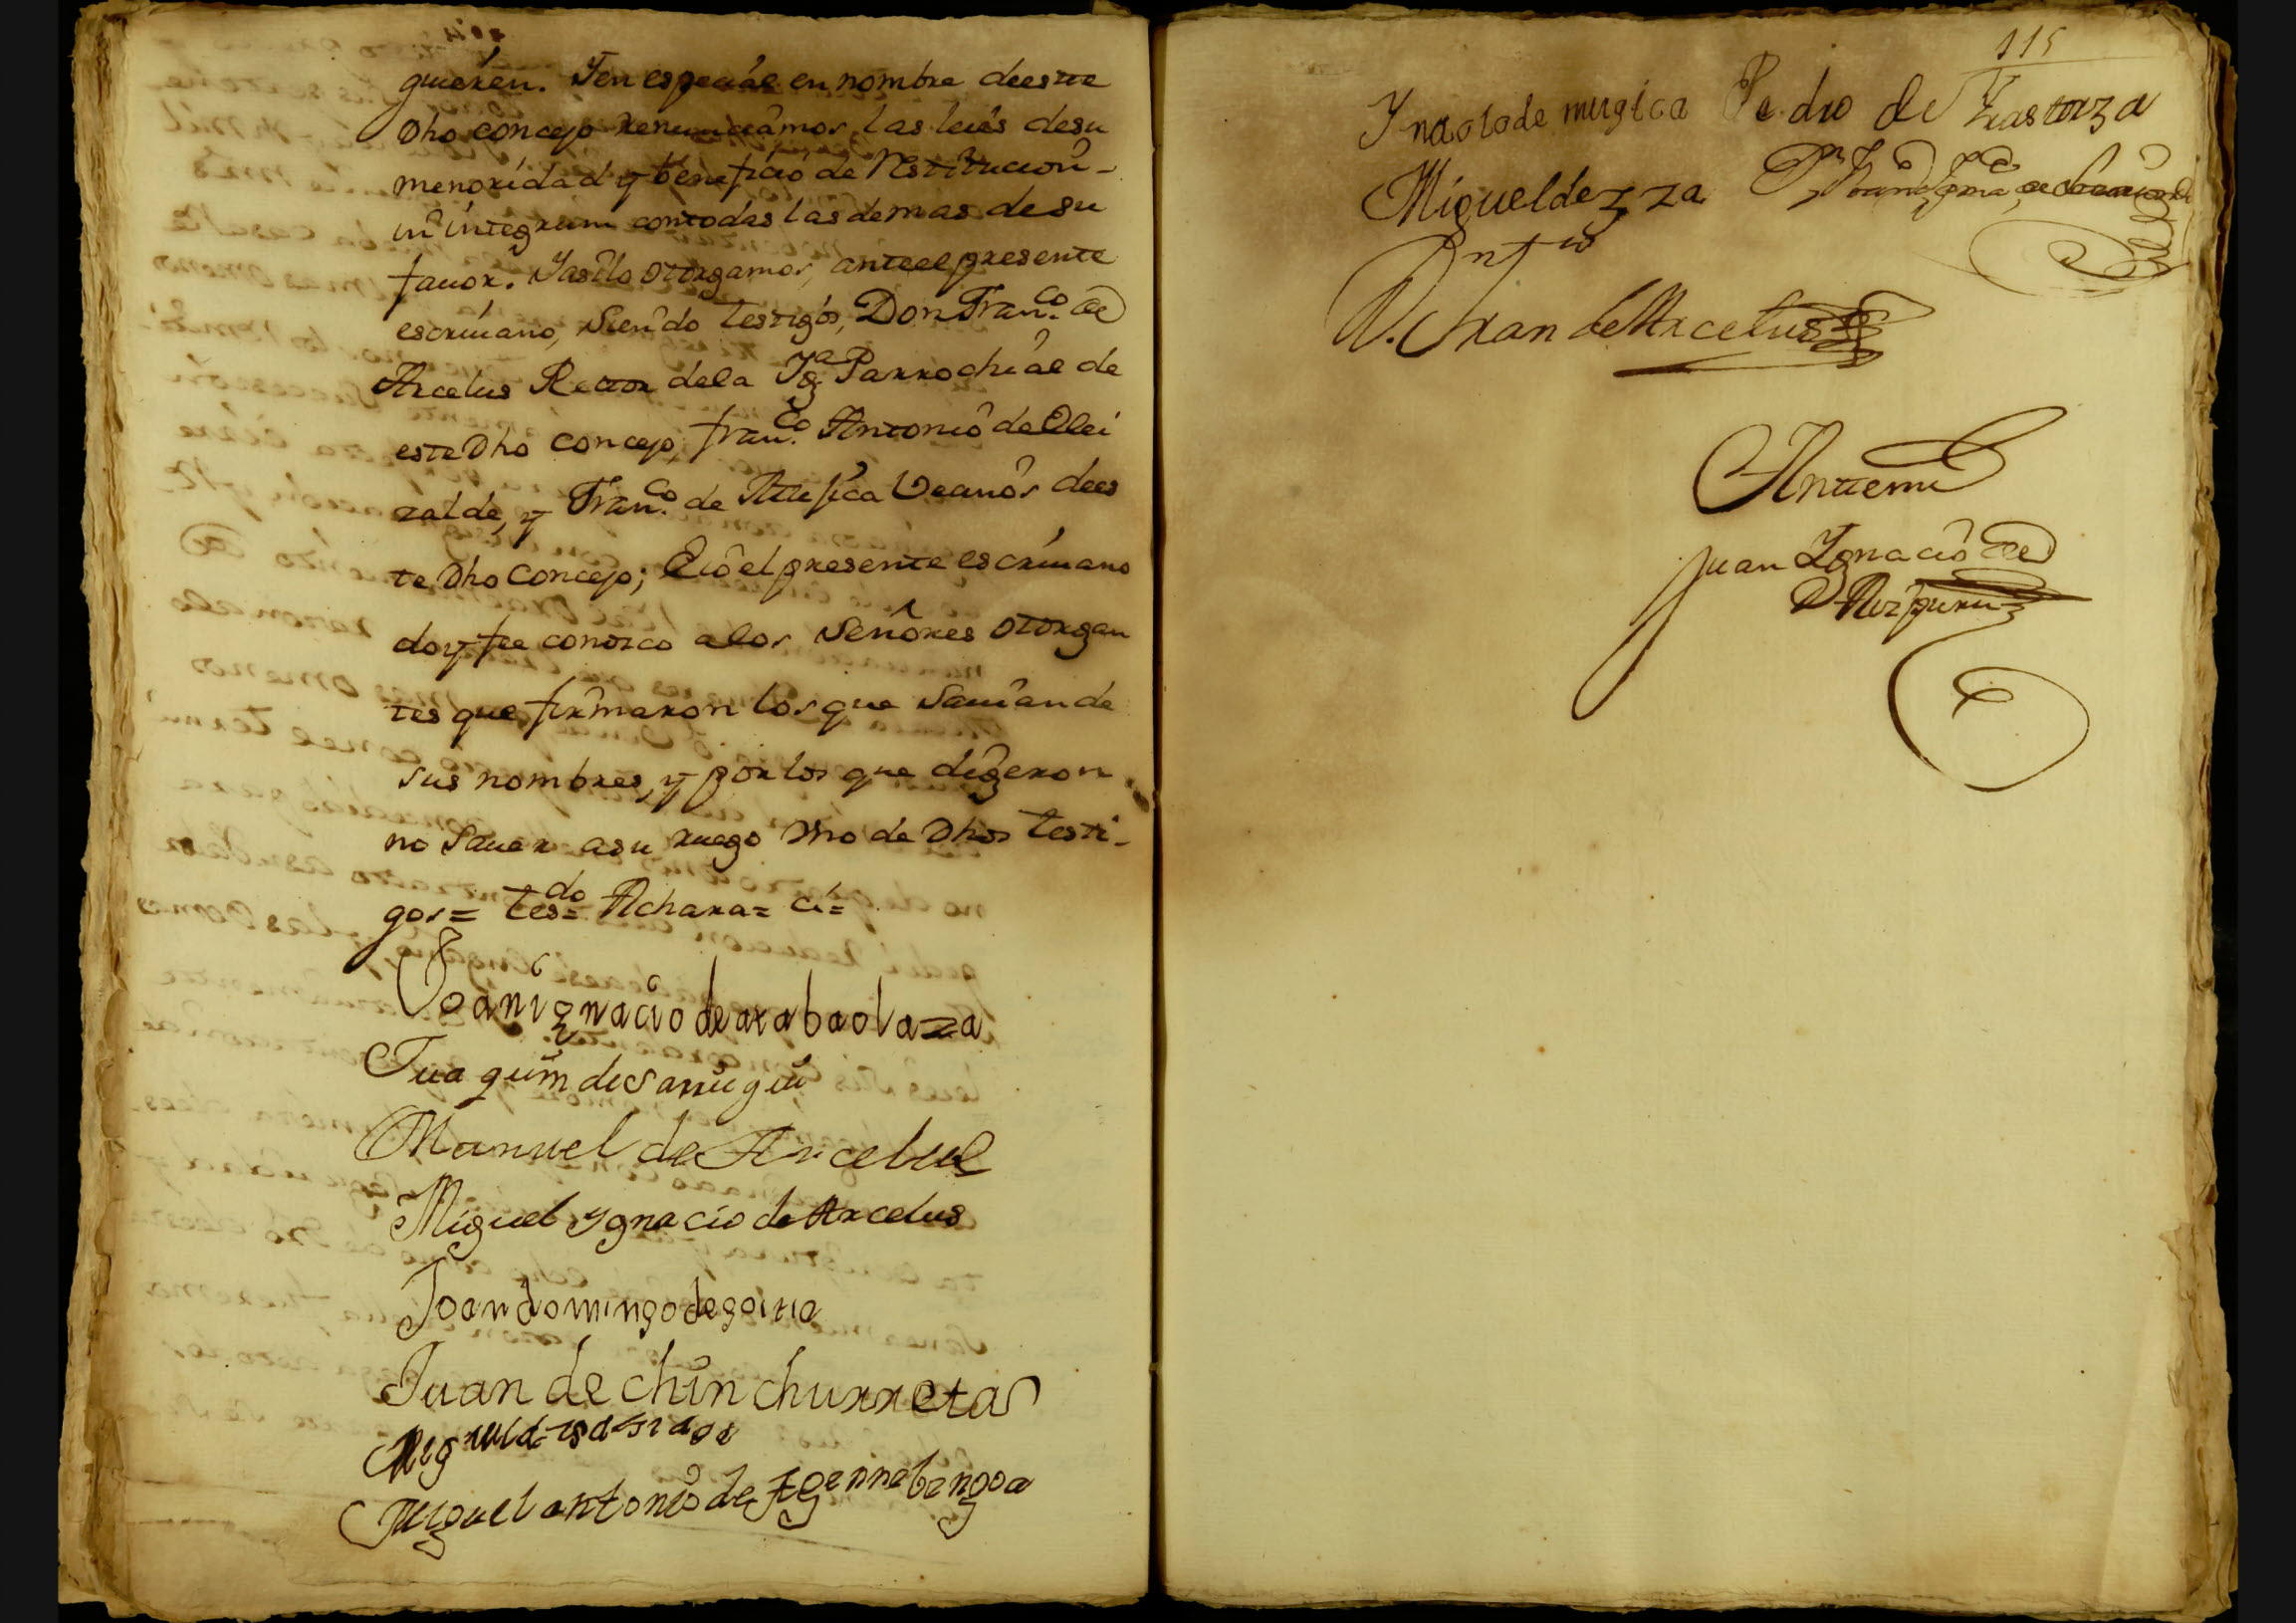 quieren. Y en especiâl en nombre deeste
Dho concejo Renunciâmos las leiês desu
menoridad y beneficiô de Restitucion -
in integrum contodas las demas desu
fauor. Y asilo otorgamos, anteel presente
escriuano, siendo testigos, Don Fran.co de
Arcelus Rector dela Yg.a Parrochiâl de
este Dho concejo, fran.co Antoniô de Olei
zalde, y Fran.co de Vecinôs dees
te Dho concejo; E iô el presente escriuano
doy fee conozco alos Señores otorgan
tes que firmaron los que sauian de
sus nombres, y por los que digeron
no sauer asu ruego Vno de Dhos testi-
gos = tes.do = Achara = ci =
Joanignacio de arabaolaza
Juaquim de Sarrugui
Manuel de Arcelus
Miguel Ygnacio de Arcelus
Joandomingodegoitia
Juan de chinchurreta
Miguel de
Miguel antonio de
115
Ynaolade mugica Pedro de
Migueldezza
D. Fran de Arcelus
Antemi
Juan Ygnaciô de
Aizpuru